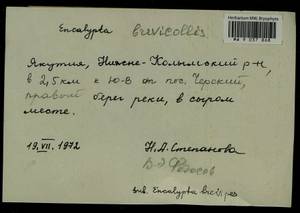 Herbarium MW, Bryophyta
Encalypta brevicollis
Якутия, Нижне-Колымский р-н,
в 2,5 км к Ю-В от пос. Черский,
правый берег реки, в сыром
месте.
19.VII.1972 Н.А. Степанова
В.Э. Федосов
sub. Encalypta brevipes